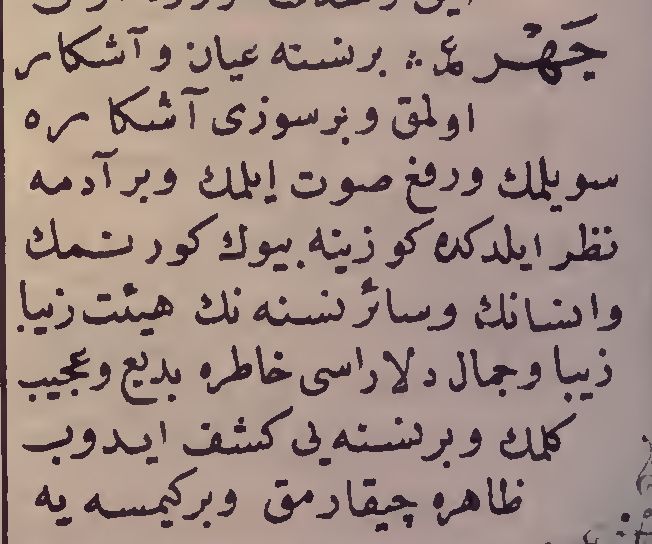 جَهْر ع م : برنسنه عيان و آشكار
اولمق و برسوزى آشكاره
سويلمك ورفع صوت إيلمك وبر آدمه
نظر ايلدكده كوزينه بيوك كورنمك
وانسانك وسائر نسنه نك هيئت زيبا
زيبا وجمال دلاراسى خاطره بديع وعجيب
كلمك وبرنسنه يى كشف ايدوب
ظاهره چيقارمق وبركيمسه يه